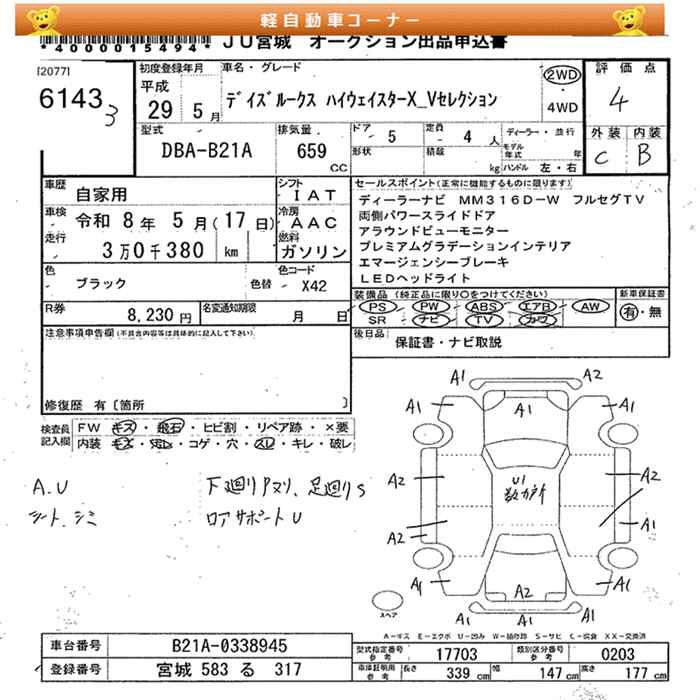 軽自動車コーナー
*4000015494* JU宮城 オークション出品申込書
[2077]
6143 3
初度登録年月 平成 29年 5月
車名・グレード
デイズルークス ハイウェイスターX_Vセレクション
2WD・4WD
評価点 4
外装 C 内装 B
型式 DBA-B21A
排気量 659 CC
ドア 5 形状
定員 - 4 人 積載 kg
ディーラー・並行
モデル年式 年
ハンドル 左・右
車歴 自家用
シフト IAT
車検 令和 8年 5月(17日)
冷房 AAC
走行 3万0千380 km
燃料 ガソリン
色 ブラック 色替
色コード X42
R券 8,230円
名変通知期限 月 日
セールスポイント(正常に機能するものに限ります)
ディーラーナビ MM316D-W フルセグTV
両側パワースライドドア
アラウンドビューモニター
プレミアムグラデーションインテリア
エマージェンシーブレーキ
LEDヘッドライト
装備品(純正品に限り○をつけてください)
PS PW ABS エアB AW
SR ナビ TV カワ
新車保証書 有・無
後日品 保証書・ナビ取説
注意事項申告欄(不具合内容等は具体的に記入して下さい)
修復歴 有〔箇所 〕
検査員記入欄
FW キズ・飛石・ヒビ割・リペア跡・×要
内装 キズ・汚れ・コゲ・穴・スレ・キレ・破レ
A.U
シート、シミ
下廻りアヌリ、足廻りS
ロアサポートU
A1 A2
A1 A1 A1
A2 U1 数カ所 A2
A2 A1
A1 A2 A1
A1 A1
スペア
A-キズ E-エクボ U-凹み W-補修跡 S-サビ C-腐食 XX-交換済
車台番号 B21A-0338945
登録番号 宮城 583 る 317
型式指定番号 参考 17703
類別区分番号 参考 0203
車庫証明用 参考 長さ 339 cm 幅 147 cm 高さ 177 cm